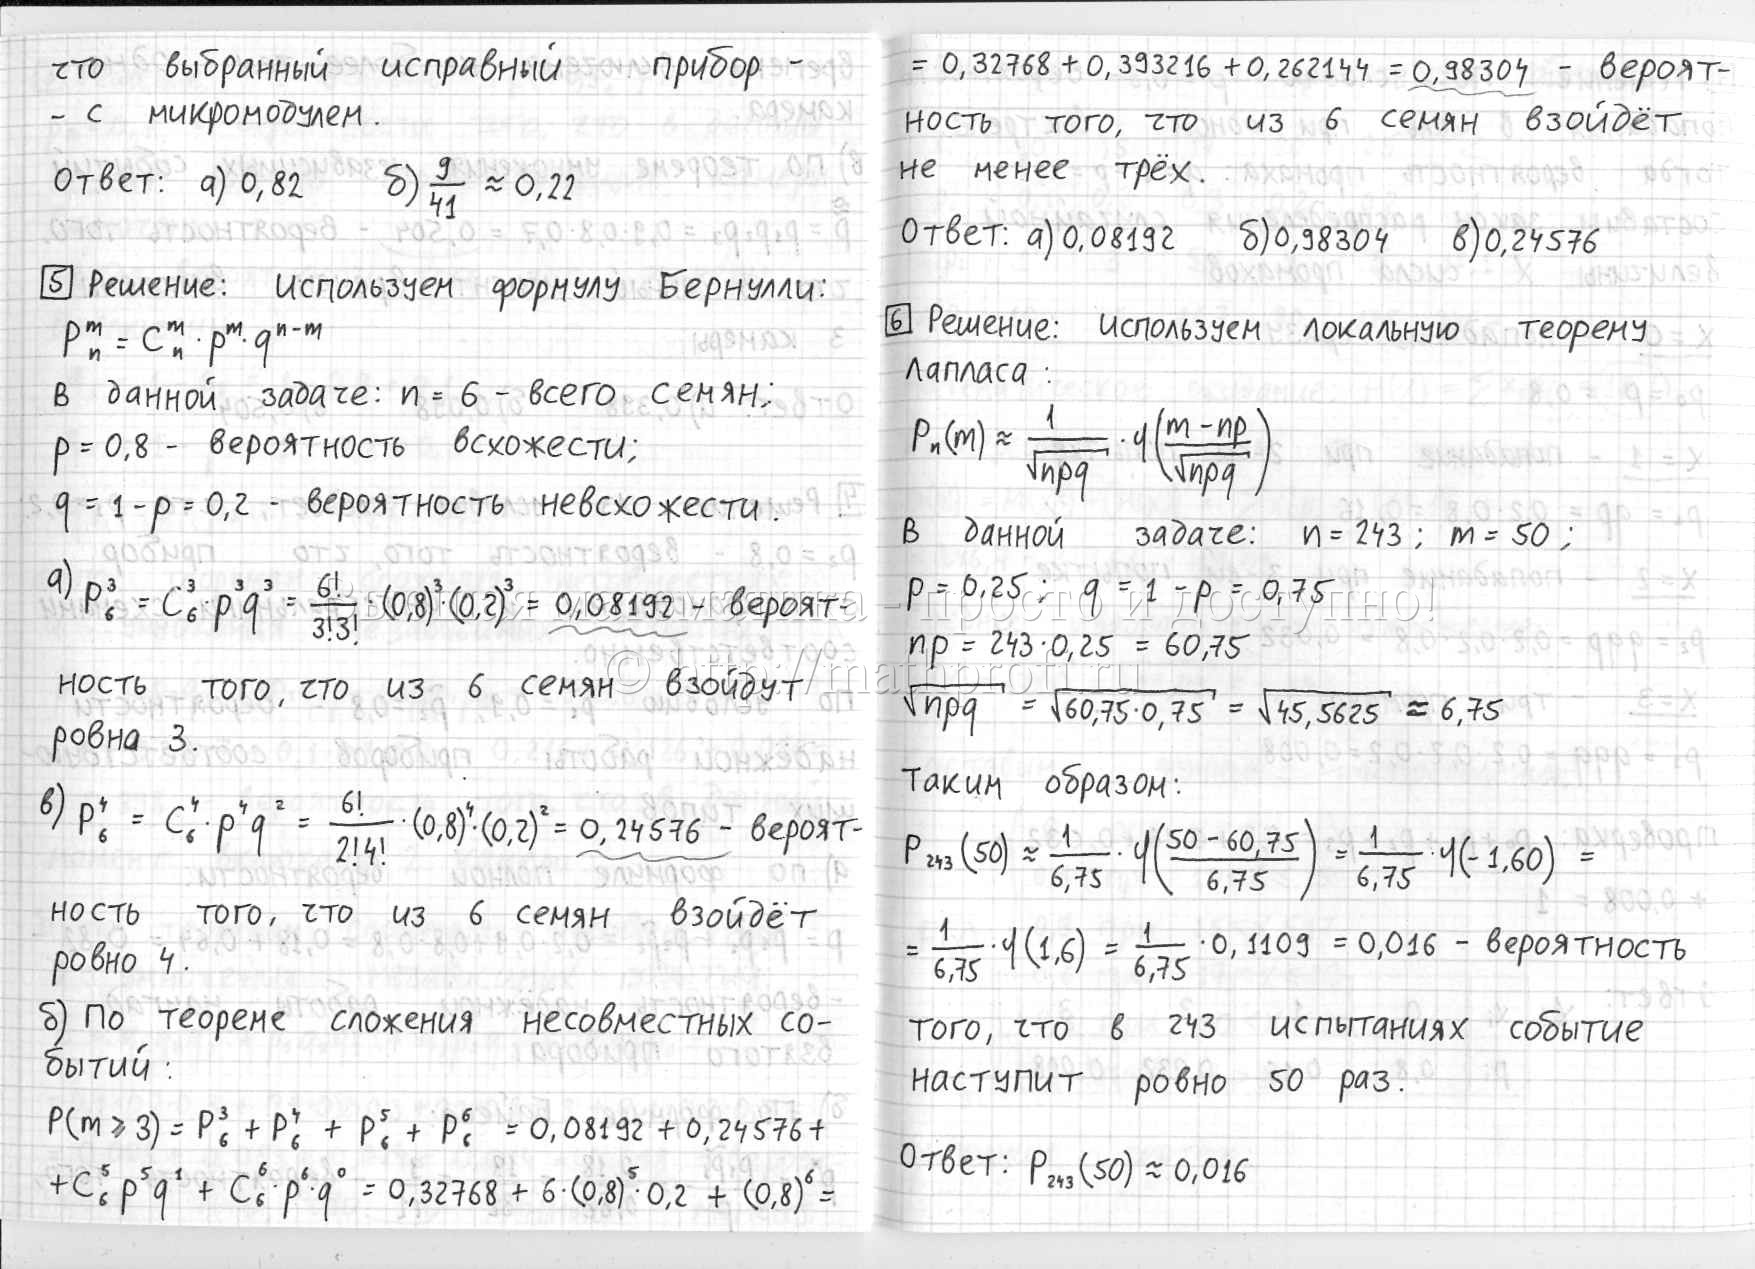 что выбранный исправный прибор -
- с микромодулем.
Ответ: а) 0,82 б) 9/41 ≈ 0,22
5 Решение: Используем формулу Бернулли:
P_n^m = C_n^m · p^m · q^(n-m)
В данной задаче: n = 6 - всего семян;
p = 0,8 - вероятность всхожести;
q = 1 - p = 0,2 - вероятность невсхожести.
а) P_6^3 = C_6^3 · p^3 q^3 = 6!/(3!3!) · (0,8)^3 · (0,2)^3 = 0,08192 - вероят-
ность того, что из 6 семян взойдут
ровна 3.
в) P_6^4 = C_6^4 · p^4 q^2 = 6!/(2!4!) · (0,8)^4 · (0,2)^2 = 0,24576 - вероят-
ность того, что из 6 семян взойдёт
ровно 4.
б) По теореме сложения несовместных со-
бытий:
P(m ⩾ 3) = P_6^3 + P_6^4 + P_6^5 + P_6^6 = 0,08192 + 0,24576 +
+ C_6^5 p^5 q^1 + C_6^6 · p^6 · q^0 = 0,32768 + 6 · (0,8)^5 · 0,2 + (0,8)^6 =
= 0,32768 + 0,393216 + 0,262144 = 0,98304 - вероят-
ность того, что из 6 семян взойдёт
не менее трёх.
Ответ: а) 0,08192 б) 0,98304 в) 0,24576
6 Решение: используем локальную теорему
Лапласа:
P_n(m) ≈ 1/√(npq) · φ((m - np)/√(npq))
В данной задаче: n = 243; m = 50;
p = 0,25; q = 1 - p = 0,75
np = 243 · 0,25 = 60,75
√(npq) = √(60,75 · 0,75) = √(45,5625) ≈ 6,75
Таким образом:
P_243(50) ≈ 1/6,75 · φ((50 - 60,75)/6,75) = 1/6,75 · φ(-1,60) =
= 1/6,75 · φ(1,6) = 1/6,75 · 0,1109 = 0,016 - вероятность
того, что в 243 испытаниях событие
наступит ровно 50 раз.
Ответ: P_243(50) ≈ 0,016
математика - просто и доступно!
© http://mathprofi.ru